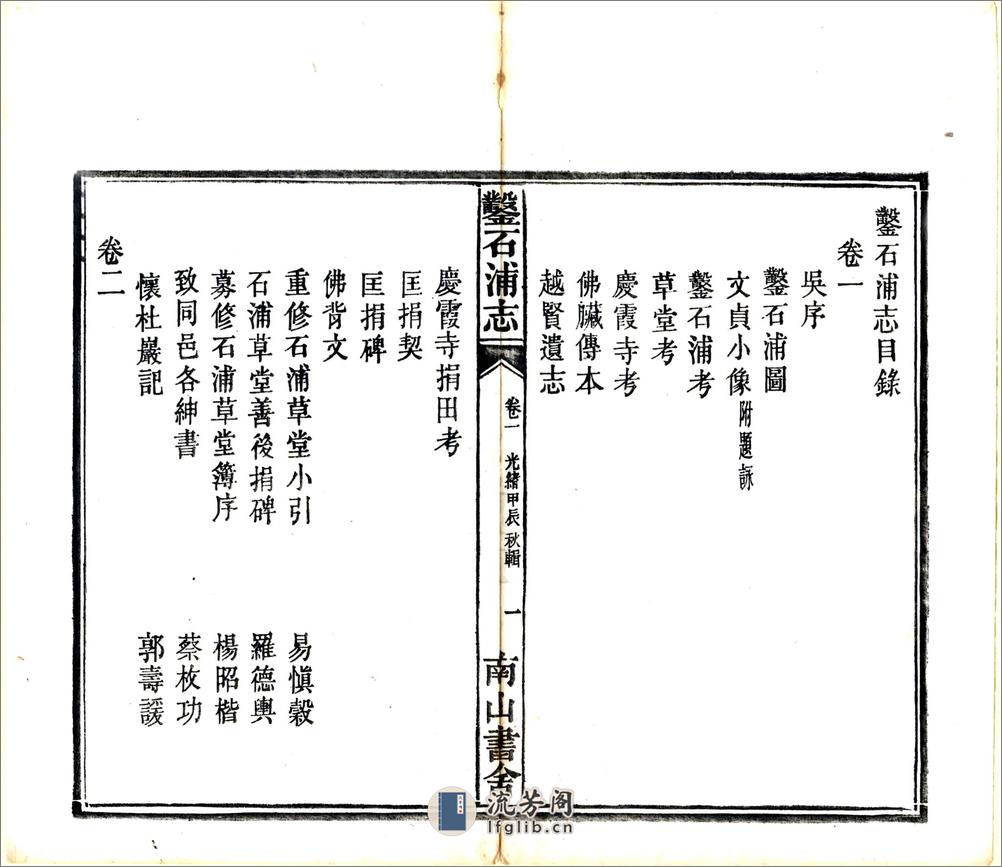 鑿石浦志目錄
卷一
吳序
鑿石浦圖
文貞小像附題詠
鑿石浦考
草堂考
慶霞寺考
佛臟傳本
越賢遺志
鑿石浦志 卷一 光緒甲辰秋輯 一 南山書舍
慶霞寺捐田考
匡捐契
匡捐碑
佛背文
重修石浦草堂小引 易愼穀
石浦草堂善後捐碑 羅德輿
募修石浦草堂簿序 楊昭楷
致同邑各紳書 蔡枚功
懷杜巖記 郭壽諼
卷二
流芳阁
lfglib.cn